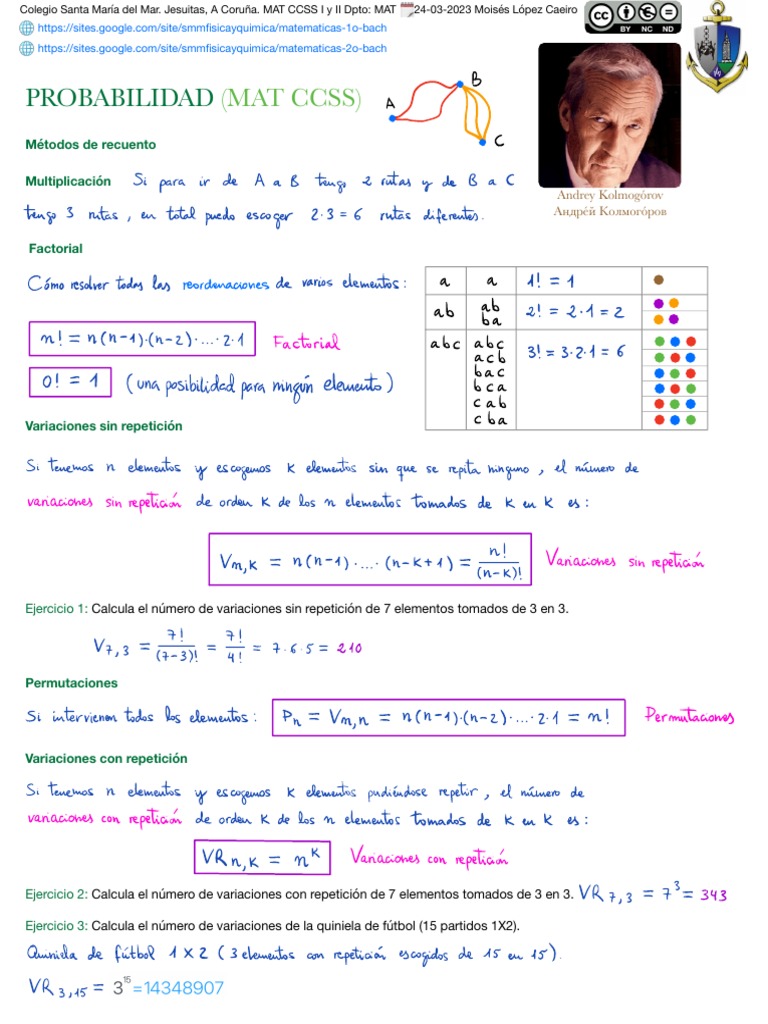 Colegio Santa María del Mar. Jesuitas, A Coruña. MAT CCSS I y II Dpto: MAT 24-03-2023 Moisés López Caeiro
https://sites.google.com/site/smmfisicayquimica/matematicas-1o-bach
https://sites.google.com/site/smmfisicayquimica/matematicas-2o-bach
cc BY NC ND
PROBABILIDAD (MAT CCSS)
A B C
Andrey Kolmogórov
Андрéй Колмогóров
Métodos de recuento
Multiplicación Si para ir de A a B tengo 2 rutas y de B a C
tengo 3 rutas, en total puedo escoger 2·3 = 6 rutas diferentes.
Factorial
Cómo resolver todas las reordenaciones de varios elementos:
n! = n(n-1)·(n-2)·...·2·1 Factorial
0! = 1 (una posibilidad para ningún elemento)
a a 1! = 1
ab ab 2! = 2·1 = 2
ba
abc abc 3! = 3·2·1 = 6
acb
bac
bca
cab
cba
Variaciones sin repetición
Si tenemos n elementos y escogemos k elementos sin que se repita ninguno, el número de
variaciones sin repetición de orden k de los n elementos tomados de k en k es:
Vn,k = n(n-1)·...·(n-k+1) = n!/(n-k)! Variaciones sin repetición
Ejercicio 1: Calcula el número de variaciones sin repetición de 7 elementos tomados de 3 en 3.
V7,3 = 7!/(7-3)! = 7!/4! = 7·6·5 = 210
Permutaciones
Si intervienen todos los elementos: Pn = Vn,n = n(n-1)·(n-2)·...·2·1 = n! Permutaciones
Variaciones con repetición
Si tenemos n elementos y escogemos k elementos pudiéndose repetir, el número de
variaciones con repetición de orden k de los n elementos tomados de k en k es:
VRn,k = n^k Variaciones con repetición
Ejercicio 2: Calcula el número de variaciones con repetición de 7 elementos tomados de 3 en 3. VR7,3 = 7³ = 343
Ejercicio 3: Calcula el número de variaciones de la quiniela de fútbol (15 partidos 1X2).
Quiniela de fútbol 1 X 2 (3 elementos con repetición escogidos de 15 en 15).
VR3,15 = 3¹⁵=14348907